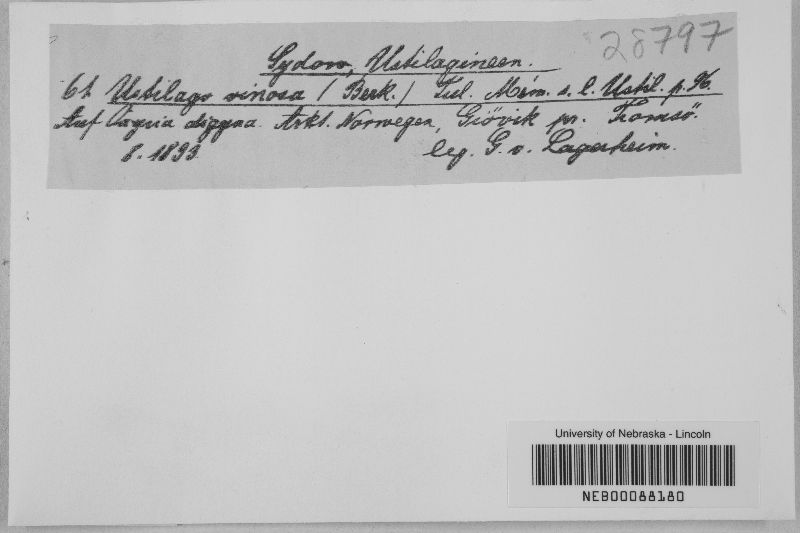 28797
Sydow, Ustilagineen.
61 Ustilago vinosa (Berk.) Tul. Mém. s. l. Ustil. p. 96.
Auf Oxyria digyna. Arkt. Norwegen, Giövik pr. Tromsö.
8. 1893 leg. G. v. Lagerheim.
University of Nebraska - Lincoln
NEB00088180